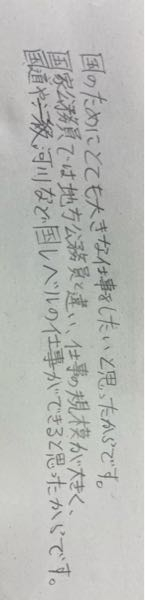 国のためにとても大きな仕事をしたいと思ったからです。
国家公務員では地方公務員と違い、仕事の規模が大きく、
国道や一級河川など国レベルの仕事ができると思ったからです。